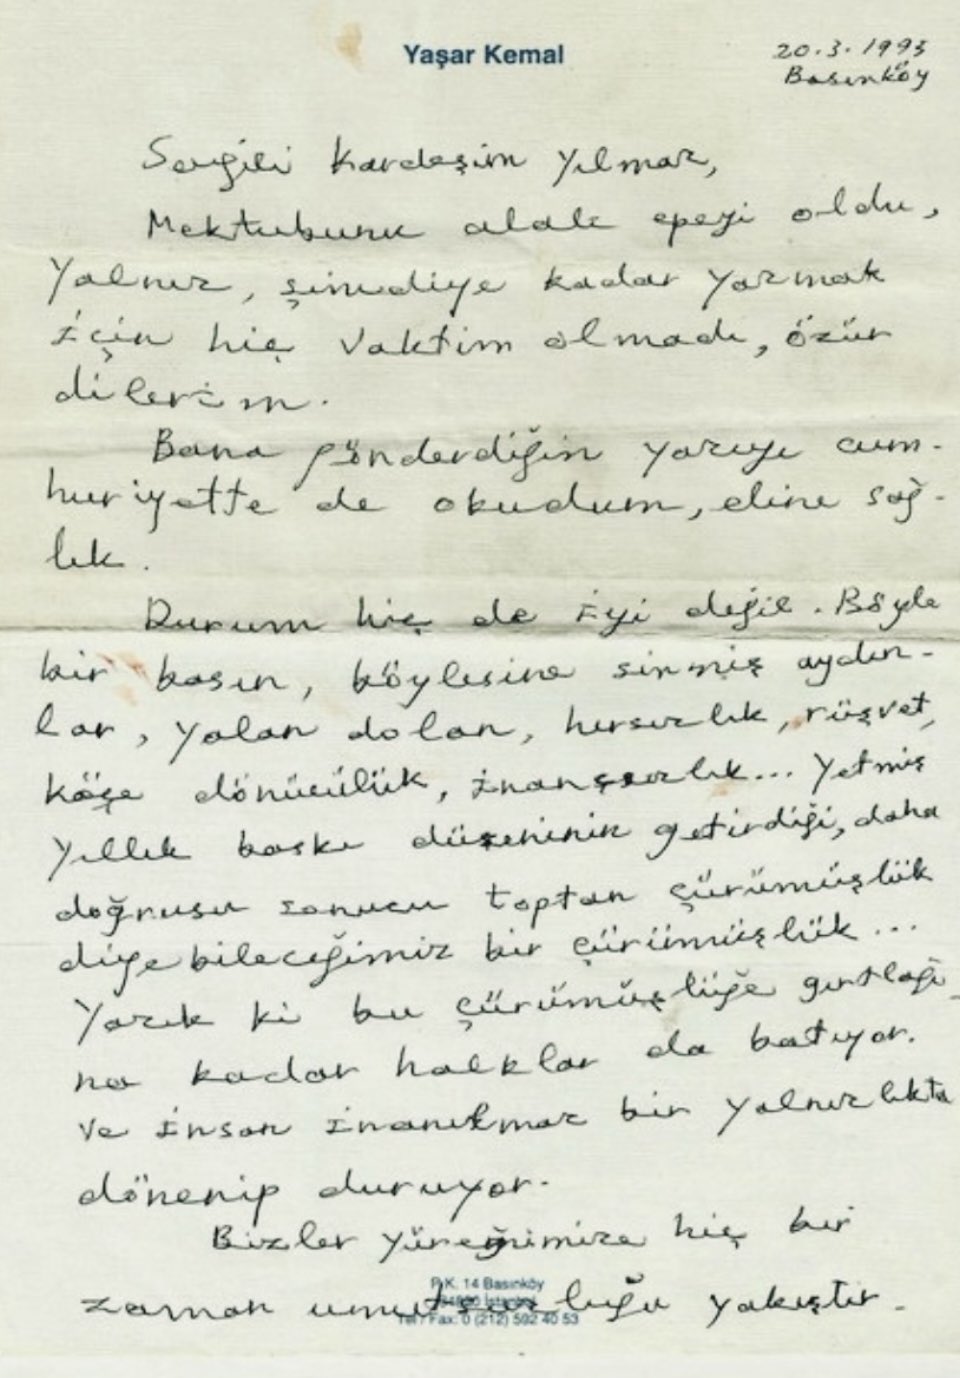 Yaşar Kemal
20.3.1995
Basınköy
Sevgili Kardeşim Yılmaz,
Mektubunu alalı epeyi oldu,
Yalnız, şimdiye kadar yazmak
için hiç vaktim olmadı, özür
dilerim.
Bana gönderdiğin yazıyı cum-
huriyette de okudum, eline sağ-
lık.
Durum hiç de iyi değil. Böyle
bir basın, böylesine sinmiş aydın-
lar, yalan dolan, hırsızlık, rüşvet,
köşe dönücülük, inançsızlık... Yetmiş
yıllık baskı düzeninin getirdiği, daha
doğrusu sonucu toptan çürümüşlük
diyebileceğimiz bir çürümüşlük...
Yazık ki bu çürümüşlüğe gırtlağı-
na kadar halklar da batıyor.
Ve insan inanılmaz bir yalnızlıkta
dönenip duruyor.
Bizler yüreğimize hiç bir
zaman umutsuzluğu yakıştır-
P.K. 14 Basınköy
İstanbul
Tel / Fax: 0 (212) 592 40 53